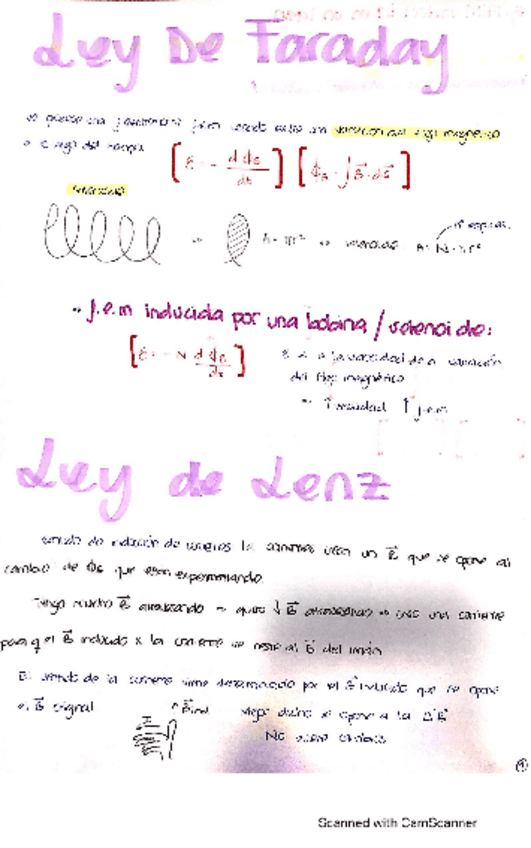 Ley De Faraday
se produce una f.electromotriz f.e.m cuando existe una variación del flujo magnético
a lo largo del tiempo
[ε = - dΦB/dt] [ΦB = ∫B⃗·ds⃗]
A = πr² A = N·πr² nº espiras.
→ f.e.m inducida por una bobina / solenoide:
[ε = - N dΦB/dt]
a la velocidad de variación
del flujo magnético
→ ↑ velocidad ↑ f.e.m
Ley de Lenz
sentido de inducción de la corriente crean un B⃗ que se opone al
cambio de ΦB que están experimentando
Tengo mucho B⃗ atravesando → quiero ↓ B⃗ atravesando → creo una corriente
para q el B⃗ inducido x la corriente se reste al B⃗ del imán
El sentido de la corriente viene determinado por el B⃗ inducido que se opone
al B⃗ original
B⃗ind
se opone a la ΔB⃗
No quiere cambios
Scanned with CamScanner